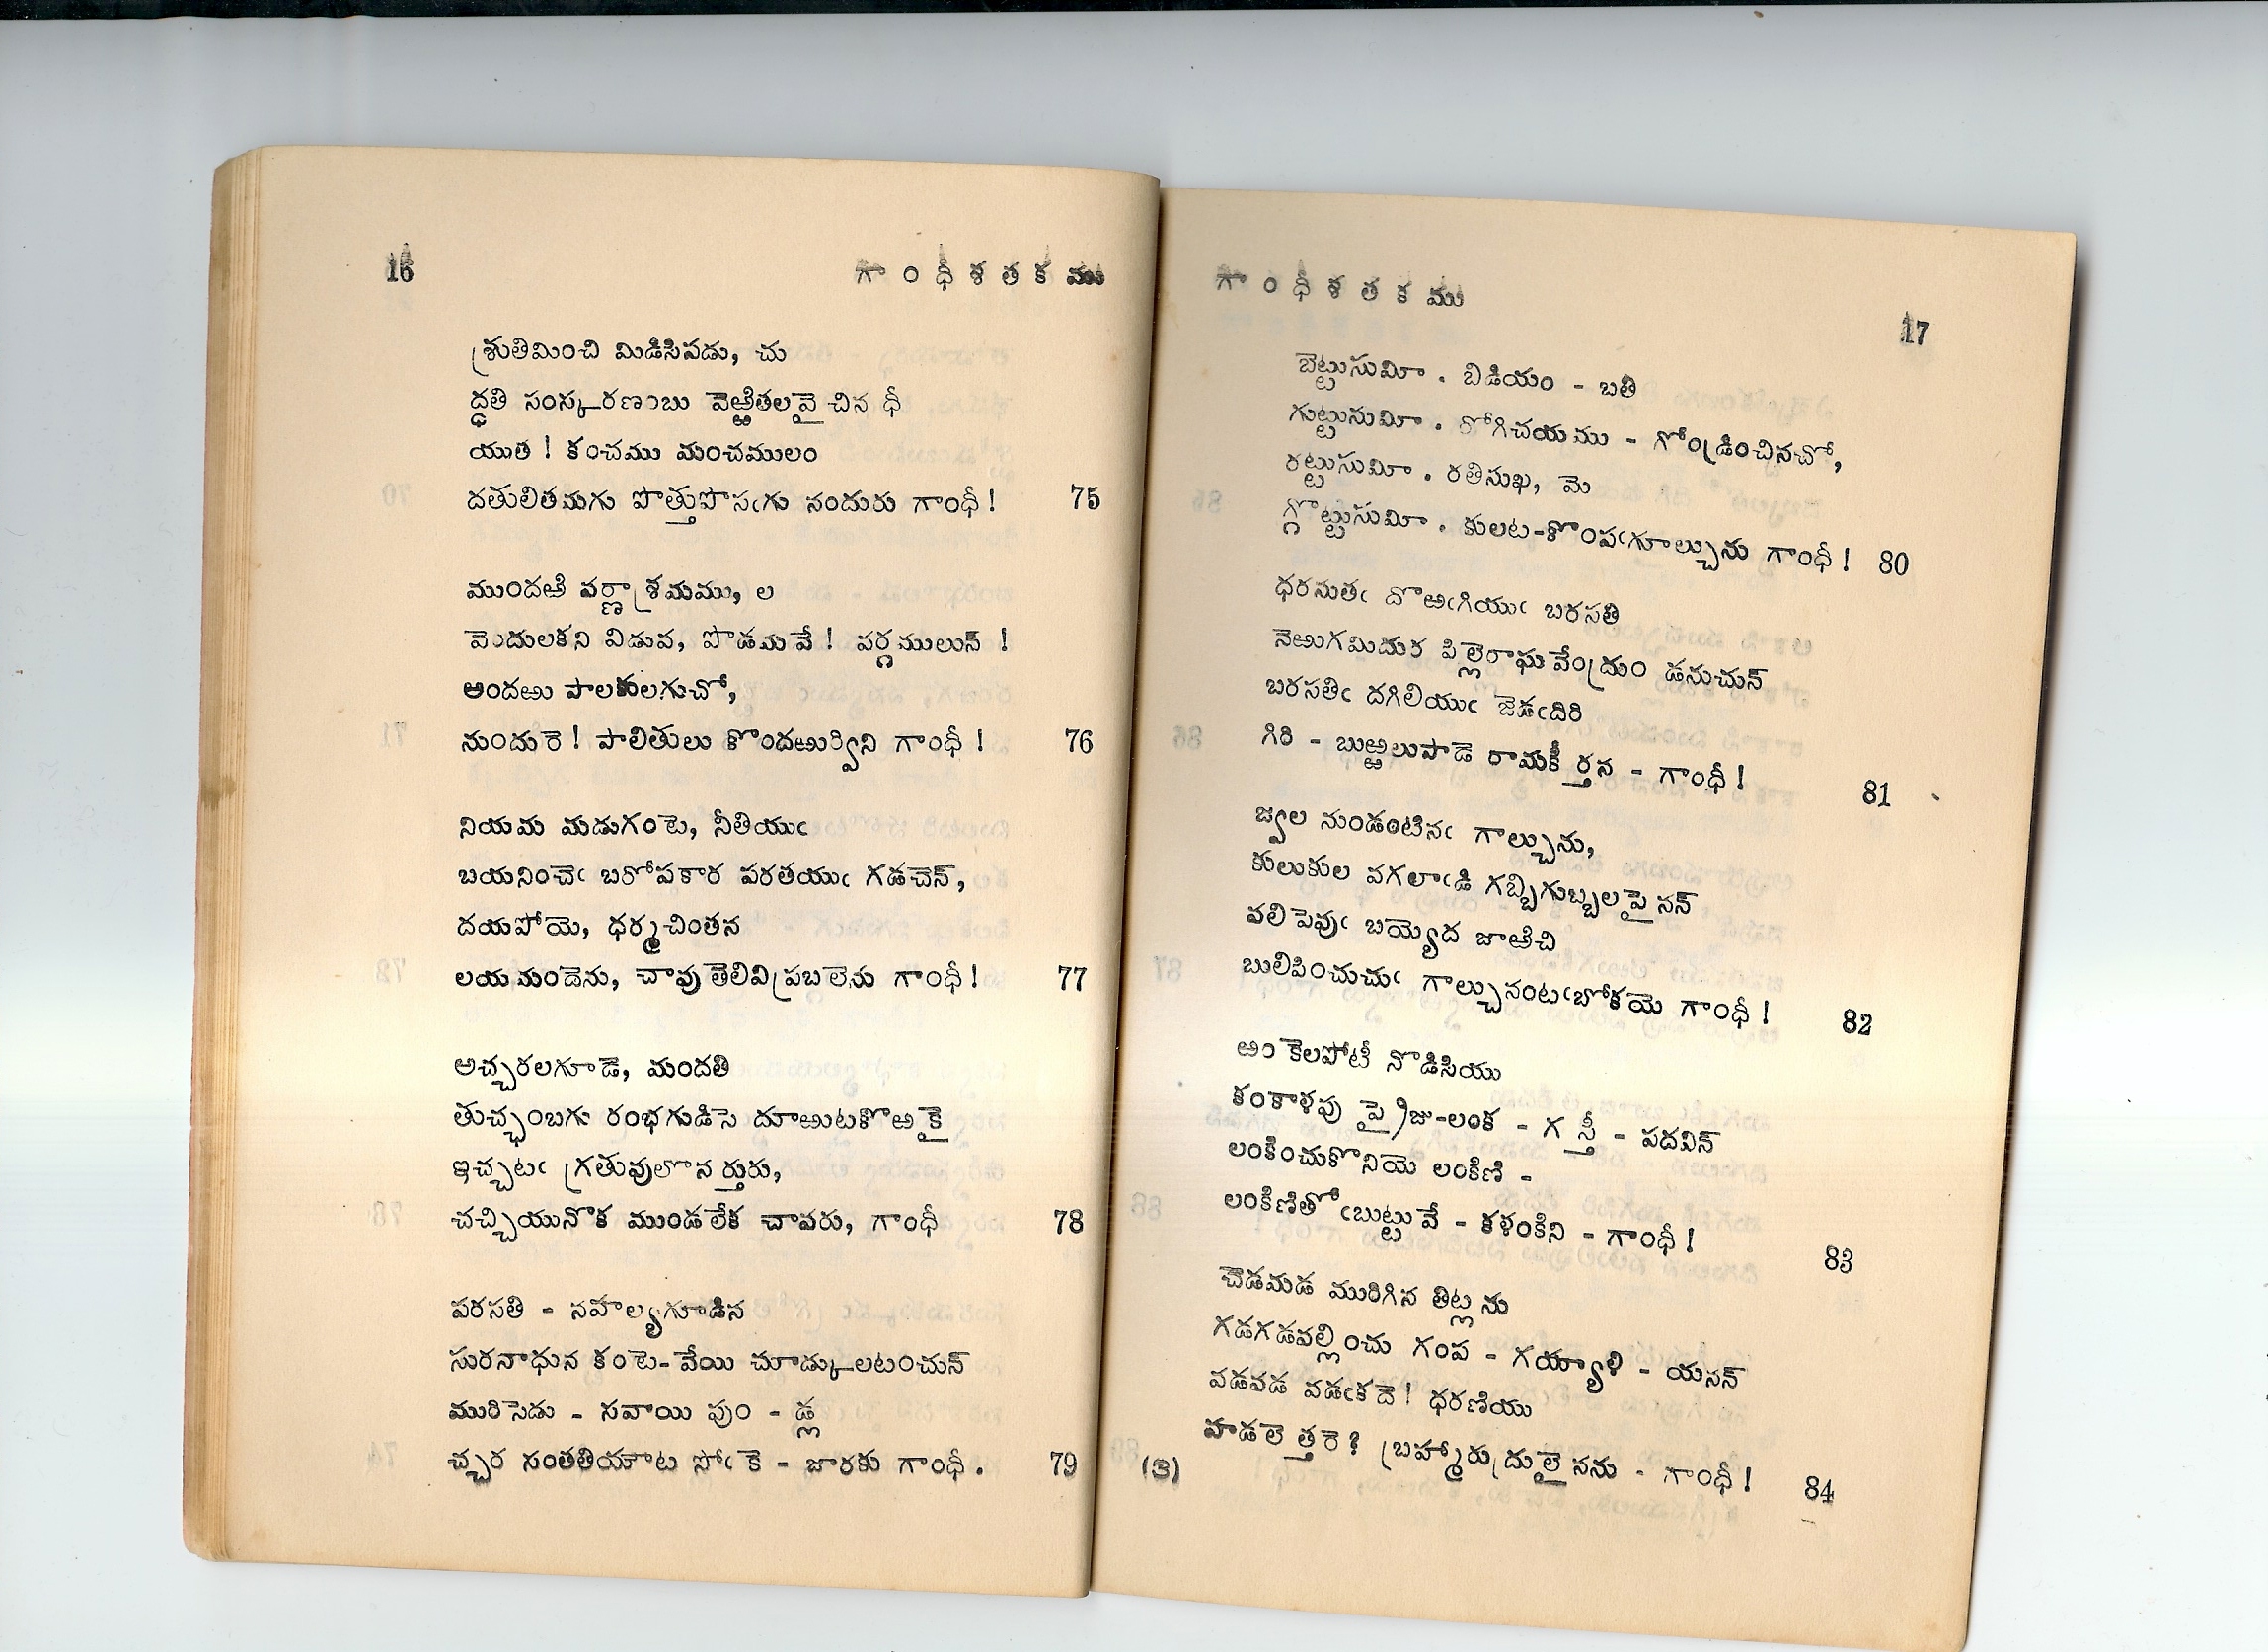 16
గాంధీశతకము
శ్రుతిమించి మిడిసిపడు, చు
ద్ధతి సంస్కరణంబు వెఱ్ఱితలవై చిన ధీ
యుత ! కంచము మంచములం
దతులితమగు పొత్తుపొసఁగు నందురు గాంధీ ! 75
ముందఱి వర్ణాశ్రమము, ల
వెందులకని విడువ, పొడమవే ! వర్గములున్ !
అందఱు పాలకులగుచో,
నుందురె ! పాలితులు కొందఱుర్విని గాంధీ ! 76
నియమ మడుగంటె, నీతియుఁ
బయనించెఁ బరోపకార పరతయుఁ గడచెన్,
దయపోయె, ధర్మచింతన
లయమందెను, చావుతెలివి ప్రబలెను గాంధీ ! 77
అచ్చరలగూడె, మందతి
తుచ్ఛంబగు రంభగుడిసె దూఱుటకొఱకై
ఇచ్చటఁ గ్రతువులొనర్తురు,
చచ్చియునొక ముండలేక చావరు, గాంధీ 78
పరసతి - నహల్యగూడిన
సురనాధున కంటె-వేయి చూడ్కులటంచున్
మురిసెడు - సవాయి పుం - డ్ల
చ్చర సంతతియాట సోఁకె - జారకు గాంధీ . 79
గాంధీశతకము
17
బెట్టుసుమీ . బిడియం - బతి
గుట్టుసుమీ . రోగిచయము - గోండ్రించినచో,
రట్టుసుమీ . రతిసుఖ, మె
గ్గొట్టుసుమీ . కులట-కొంపఁగూల్చును గాంధీ ! 80
ధరసుతఁ దొఱఁగియుఁ బరసతి
నెఱుగమిదుర పిల్లెరాఘవేంద్రుం డనుచున్
బరసతిఁ దగిలియుఁ జెడఁదిరి
గిరి - బుఱ్ఱలుపాడె రామకీర్తన - గాంధీ ! 81
జ్వల నుండంటినఁ గాల్చును,
కులుకుల వగలాఁడి గబ్బిగుబ్బలపై నన్
వలిపెవుఁ బయ్యెద జాఱిచి
బులిపించుచుఁ గాల్చునంటఁబోకయె గాంధీ ! 82
ఱంకెలపోటీ నొడిసియు
కంకాళపు ప్రైజు-లంక - గస్తీ - పదవిన్
లంకించుకొనియె లంకిణి -
లంకిణితోఁబుట్టువే - కళంకిని - గాంధీ ! 83
చెడమడ మురిగిన తిట్లను
గడగడవల్లించు గంప - గయ్యాళి - యనన్
వడవడ వడఁకదె ! ధరణియు
హడలెత్తరె ? బ్రహ్మారుద్రులైనను - గాంధీ ! 84
(3)